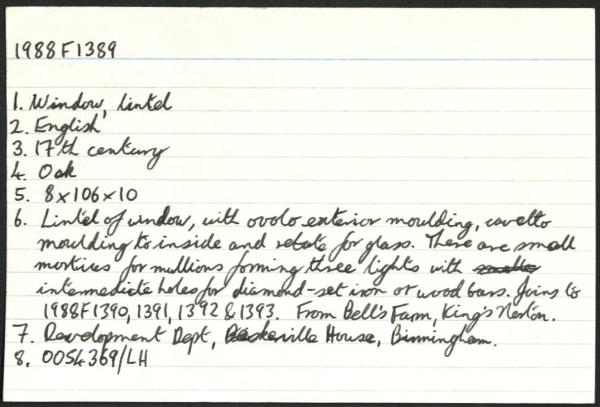 1988F1389
1. Window, lintel
2. English
3. 17th century
4. Oak
5. 8x106x10
6. Lintel of window, with ovolo exterior moulding, cavetto
moulding to inside and rebate for glass. There are small
mortices for mullions forming three lights with
intermediate holes for diamond-set iron or wood bars. Joins to
1988F1390, 1391, 1392 & 1393. From Bell's Farm, King's Norton.
7. Development Dept, Baskerville House, Birmingham.
8. 0054369/LH